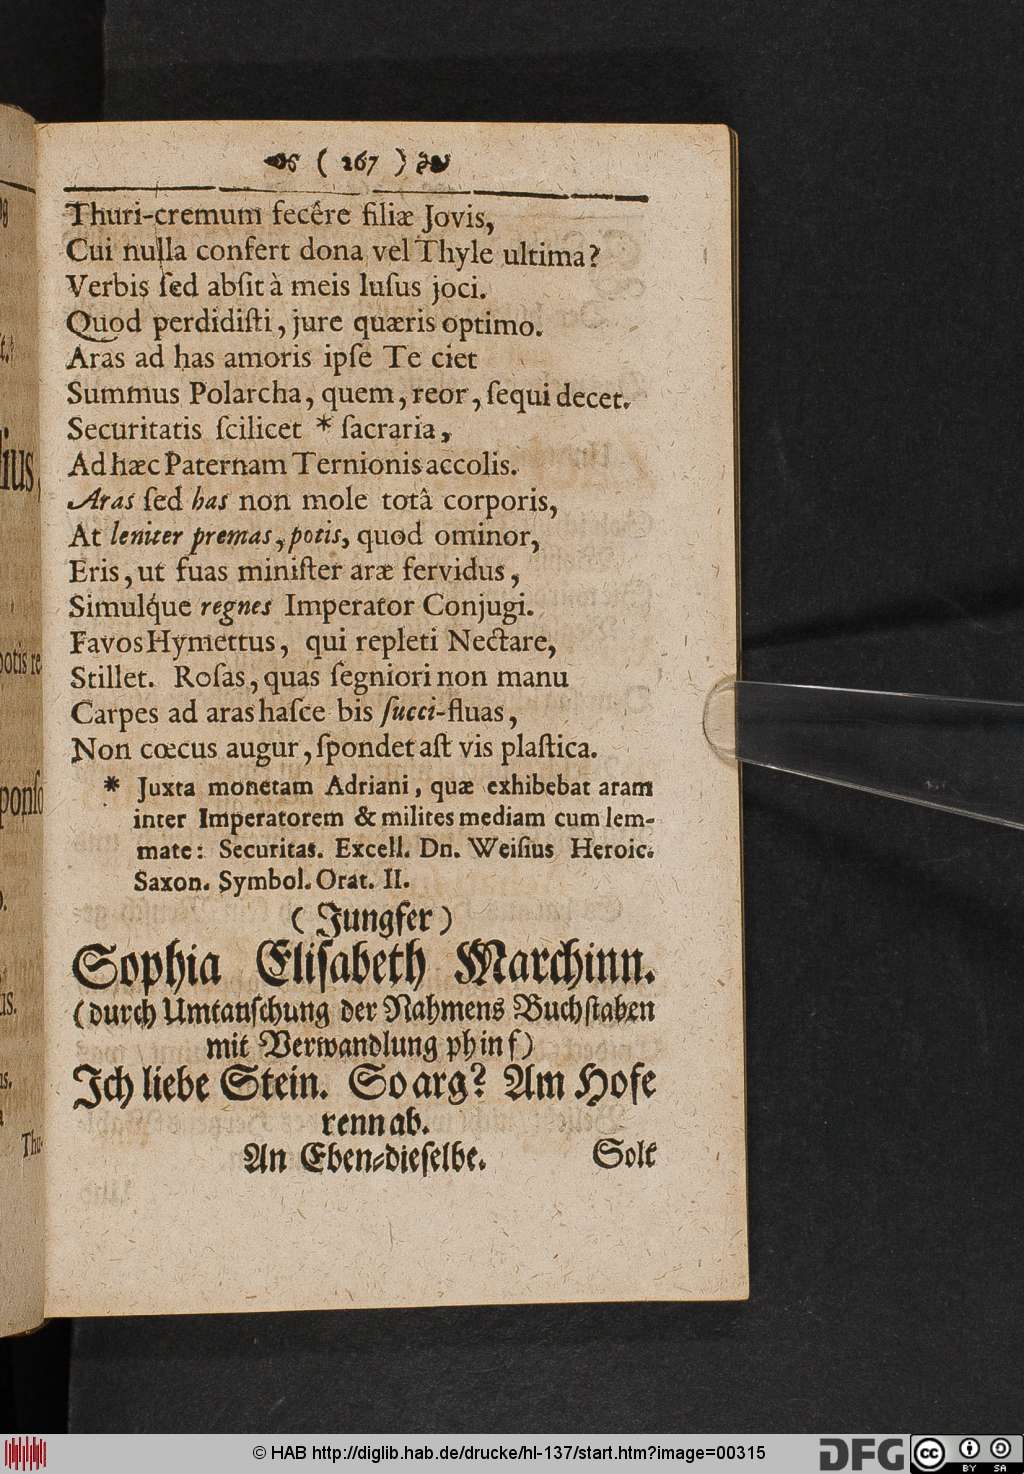 ( 267 )
Thuri-cremum fecêre filiæ Jovis,
Cui nulla confert dona vel Thyle ultima?
Verbis ſed abſit à meis luſus joci.
Quod perdidiſti, jure quæris optimo.
Aras ad has amoris ipſe Te ciet
Summus Polarcha, quem, reor, ſequi decet.
Securitatis ſcilicet * ſacraria,
Ad hæc Paternam Ternionis accolis.
Aras ſed has non mole totâ corporis,
At leniter premas, potis, quod ominor,
Eris, ut fuas miniſter aræ fervidus,
Simulq́ue regnes Imperator Conjugi.
Favos Hymettus, qui repleti Nectare,
Stillet. Roſas, quas ſegniori non manu
Carpes ad aras haſce bis ſucci-fluas,
Non cœcus augur, ſpondet aſt vis plaſtica.
* Juxta monetam Adriani, quæ exhibebat aram
inter Imperatorem & milites mediam cum lem-
mate: Securitas. Excell. Dn. Weiſius Heroic.
Saxon. Symbol. Orat. II.
( Jungfer )
Sophia Eliſabeth Marchinn.
(durch Umtauſchung der Nahmens Buchſtaben
mit Verwandlung ph in f)
Ich liebe Stein. So arg? Am Hofe
renn ab.
An Eben-dieſelbe.
Solt
© HAB http://diglib.hab.de/drucke/hl-137/start.htm?image=00315
DFG
cc
BY SA